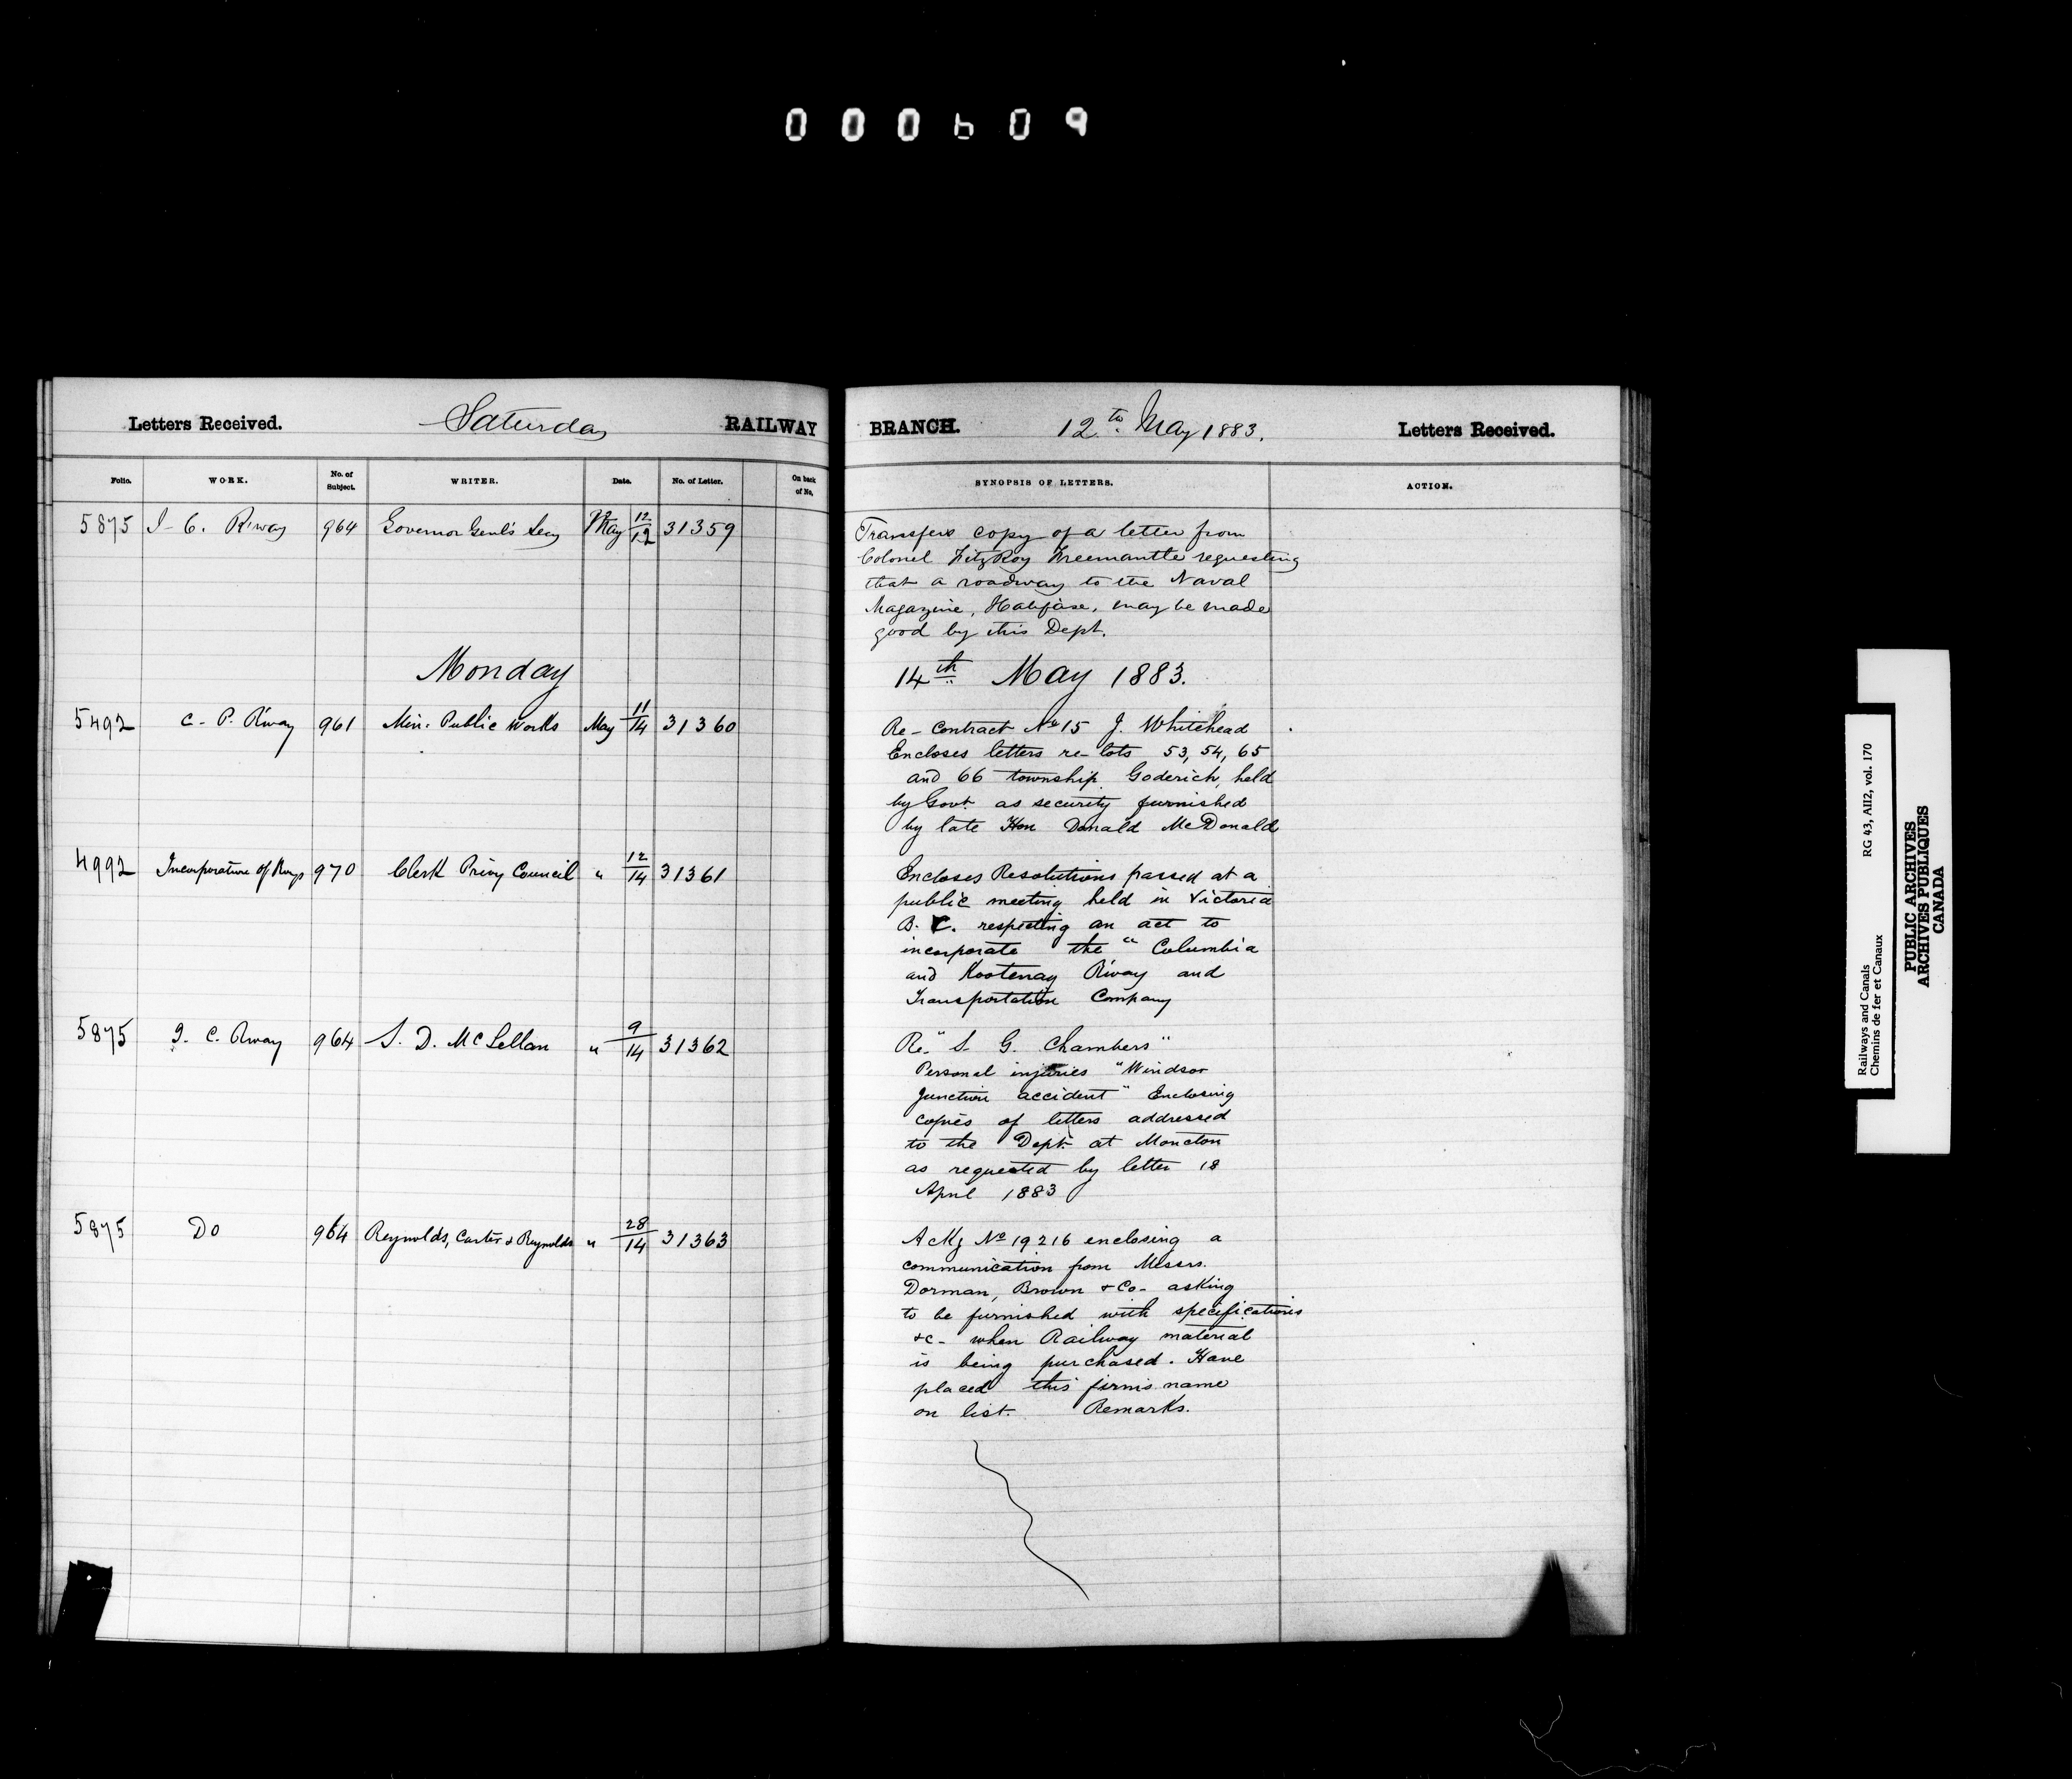 000609
Letters Received. Saturday RAILWAY BRANCH. 12th May 1883. Letters Received.
Folio. WORK. No. of Subject. WRITER. Date. No. of Letter. On back of No, SYNOPSIS OF LETTERS. ACTION.
5875 I-C. R'way 964 Governor Genl's Secy May 12/12 31359
Transfers copy of a letter from
Colonel FitzRoy Freemantle requesting
that a roadway to the Naval
Magazine, Halifax, may be made
good by this Dept.
Monday 14th May 1883.
5492 C-P. R'way 961 Min. Public Works May 11/14 31360
Re-Contract No 15 J. Whitehead
Encloses letters re-lots 53, 54, 65
and 66 township Goderich, held
by Govt. as security furnished
by late Hon Donald McDonald
4992 Incorporation of Rways 970 Clerk Privy Council " 12/14 31361
Encloses Resolutions passed at a
public meeting held in Victoria
B. C. respecting an act to
incorporate the "Columbia
and Kootenay R'way and
Transportation Company
5875 I. C. Rway 964 S. D. McLellan " 9/14 31362
Re. "S. G. Chambers"
Personal injuries "Windsor
Junction accident" Enclosing
copies of letters addressed
to the Dept. at Moncton
as requested by letter 18
April 1883
5875 Do 964 Reynolds, Carter & Reynolds " 28/14 31363
Ackg No 19216 enclosing a
communication from Messrs.
Dorman, Brown & Co- asking
to be furnished with specifications
&c- when Railway material
is being purchased. Have
placed this firm's name
on list. Remarks.
Railways and Canals RG 43, AII2, vol. 170
Chemins de fer et Canaux
PUBLIC ARCHIVES
ARCHIVES PUBLIQUES
CANADA